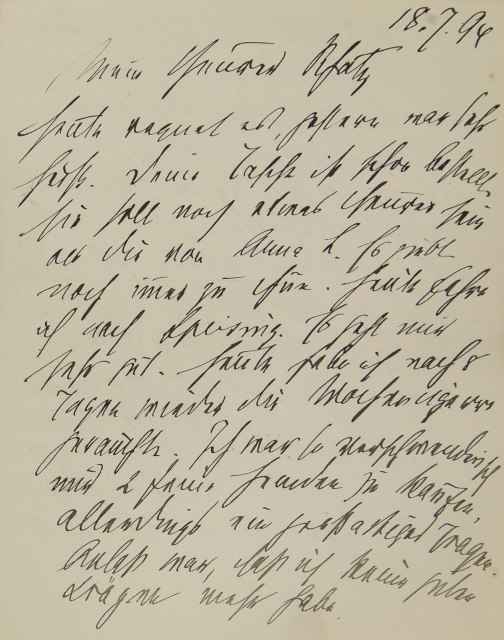 18.7.94
Mein theurer Schatz
heute regnet es, gestern war sehr
heiß. Deine Tasche ist schon bestellt,
sie soll noch etwas theurer sein
als die von Anna L. Es gibt
noch immer zu thun. Heute fahre
ich nach Speising. Es geht mir
sehr gut. Heute habe ich nach 8
Tagen wieder die Wochencigarre
geraucht. Ich war so verschwenderisch
mir 2 feine Hemden zu kaufen,
allerdings ein großartiger Kragen
Anlaß war, daß ich keine guten
Krägen mehr habe.